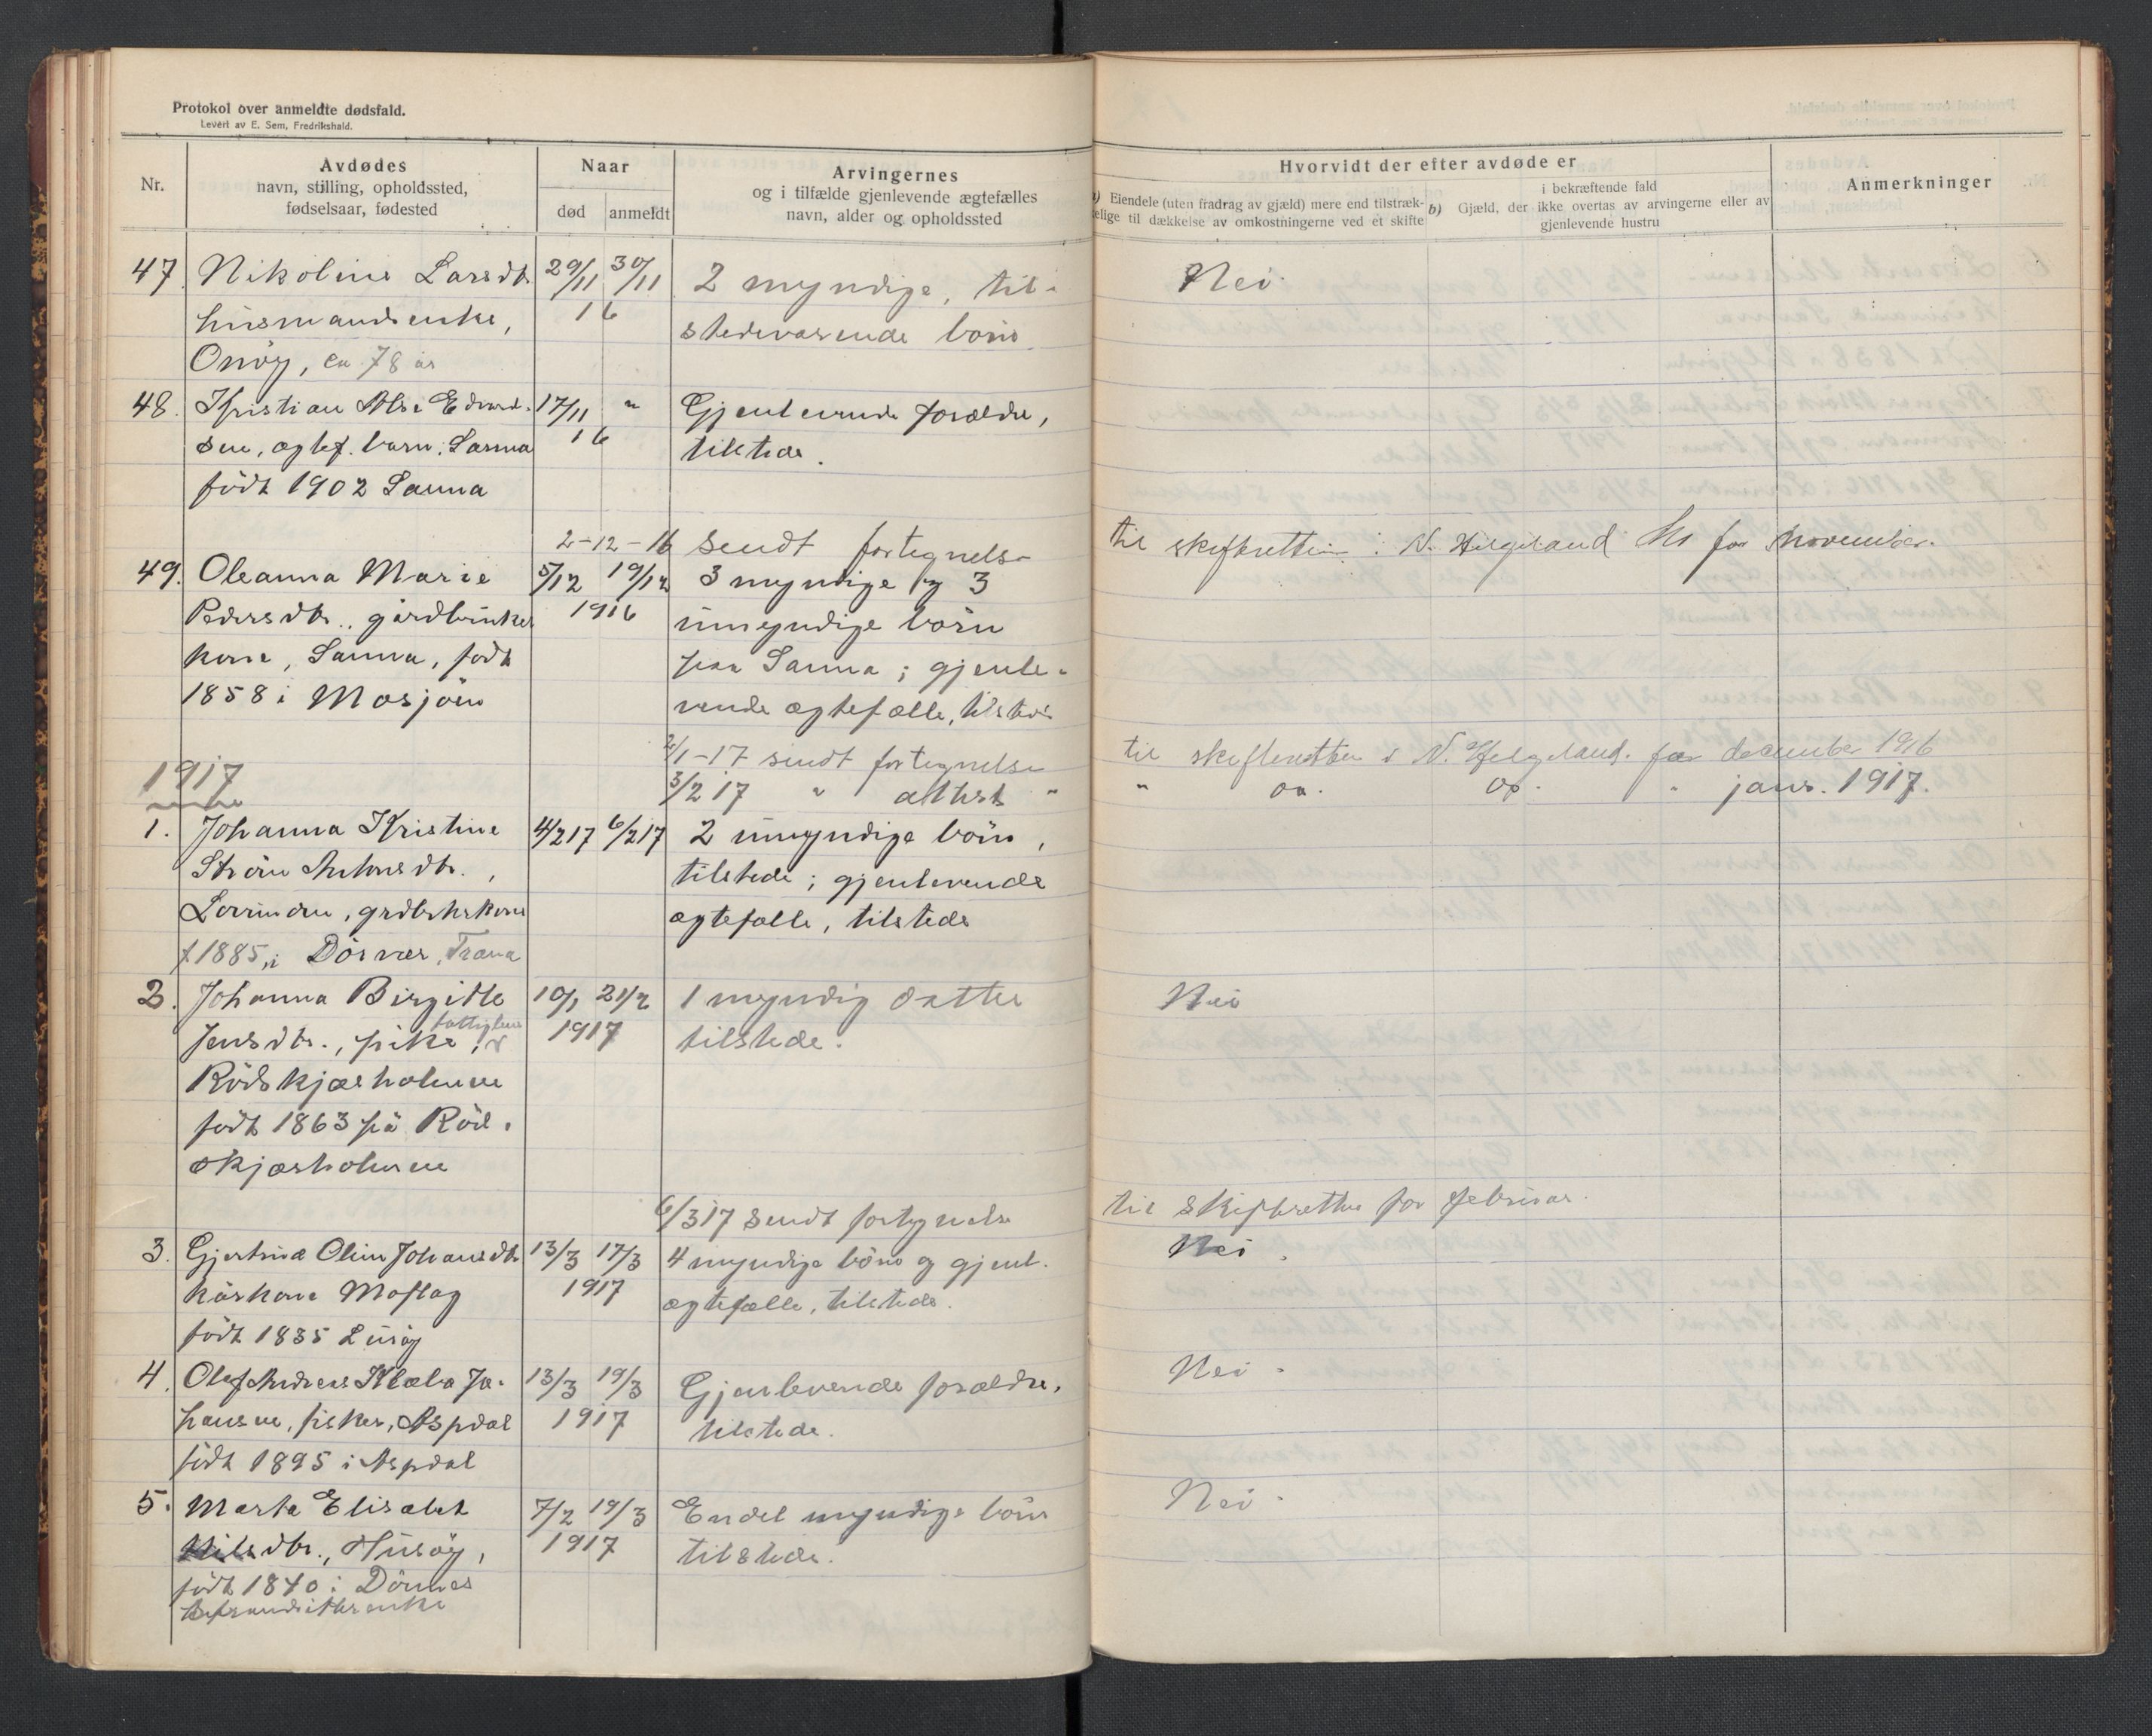 Protokol over anmeldte dødsfald.
Levert av E. Sem, Fredrikshald.
Nr.
Avdødes
navn, stilling, opholdssted,
fødselsaar, fødested
Naar
død
anmeldt
Arvingernes
og i tilfælde gjenlevende ægtefælles
navn, alder og opholdssted
Hvorvidt der efter avdøde er
Eiendele (uten fradrag av gjæld) mere end tilstræk-
kelige til dækkelse av omkostningerne ved et skifte
i bekræftende fald
b) Gjæld, der ikke overtas av arvingerne eller av
gjenlevende hustru
Anmerkninger
47. Nikoline Larsdtr 29/11 30/11 2 myndige, til- Nei.
husmandsenke, 16 stedeværende børn.
Onøy, ca 78 år
48. Kristian Edvard- 17/11 " Gjenlevende forældre,
sen, ægtef. barn, Sanna 16 tilstede.
født 1902 Sanna
2-12-16 sendt fortegnelse til skifteretten i N. Helgeland for november.
49. Oleanna Marie 5/12 19/12 3 myndige og 3
Pedersdtr., gårdbruker 1916 umyndige börn
kone, Sanna, født paa Sanna; gjenle-
1858 i Mosjøen vende ægtefælle, tilstede
2/1-17 sendt fortegnelse til skifteretten i N. Helgeland. for december 1916
1917 3/2 17 " attest " " do. do. " janr. 1917.
1. Johanna Kristine 4/2 17 6/2 17 2 umyndige börn,
Ström Antonsdtr., tilstede; gjenlevende
Lovunden, grdbrkskone ægtefælle, tilstede
f. 1885, i Dörvær, Træna
2. Johanna Birgitte 10/1 21/2 1 myndig datter Nei
fattiglem
Jensdtr., pike, 1917 tilstede.
Rödskjærholmene
født 1863 på Röd-
skjærholmene
6/3 17 sendt fortegnelse til skifteretten for februar.
3. Gjertrud Oline Johansdtr 13/3 17/3 4 myndige börn og gjenl. Nei.
kårkone Moflag 1917 ægtefælle, tilstede.
født 1835 Lusöy
4. Olaf Andreas Jo- 13/3 19/3 Gjenlevende forældre, Nei.
hansen, fisker, Aspdal 1917 tilstede.
født 1895 i Aspdal
5. Marta Elisabet 7/2 19/3 Endel myndige börn Nei.
Nilsdtr., Husöy, 1917 tilstede.
født 1840 i Dönnes